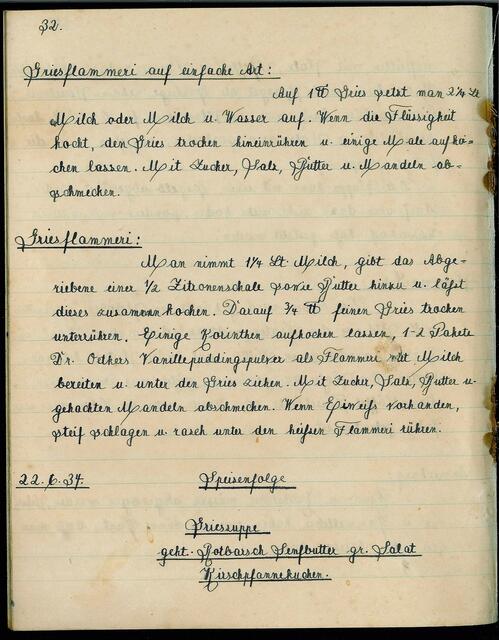 32.
Griesflammeri auf einfache Art:
Auf 1 ℔ Gries setzt man 2¼ Lt.
Milch oder Milch u. Wasser auf. Wenn die Flüssigkeit
kocht, den Gries trocken hineinrühren u. einige Male aufko-
chen lassen. Mit Zucker, Salz, Butter u. Mandeln ab-
schmecken.
Griesflammeri:
Man nimmt 1¼ Lt. Milch, gibt das Abge-
riebene einer ½ Zitronenschale sowie Butter hinzu u. läßt
dieses zusammenkochen. Darauf ¾ ℔ feinen Gries trocken
unterrühren. Einige Korinthen aufkochen lassen, 1-2 Pakete
Dr. Oetkers Vanillepuddingpulver als Flammeri mit Milch
bereiten u. unter den Gries ziehen. Mit Zucker, Salz, Butter u.
gehackten Mandeln abschmecken. Wenn Eiweiß vorhanden,
steif schlagen u. rasch unter den heißen Flammeri rühren.
22.6.34. Speisenfolge
Griessuppe
gekt. Rotbarsch Senfbutter gr. Salat
Kirschpfannekuchen.